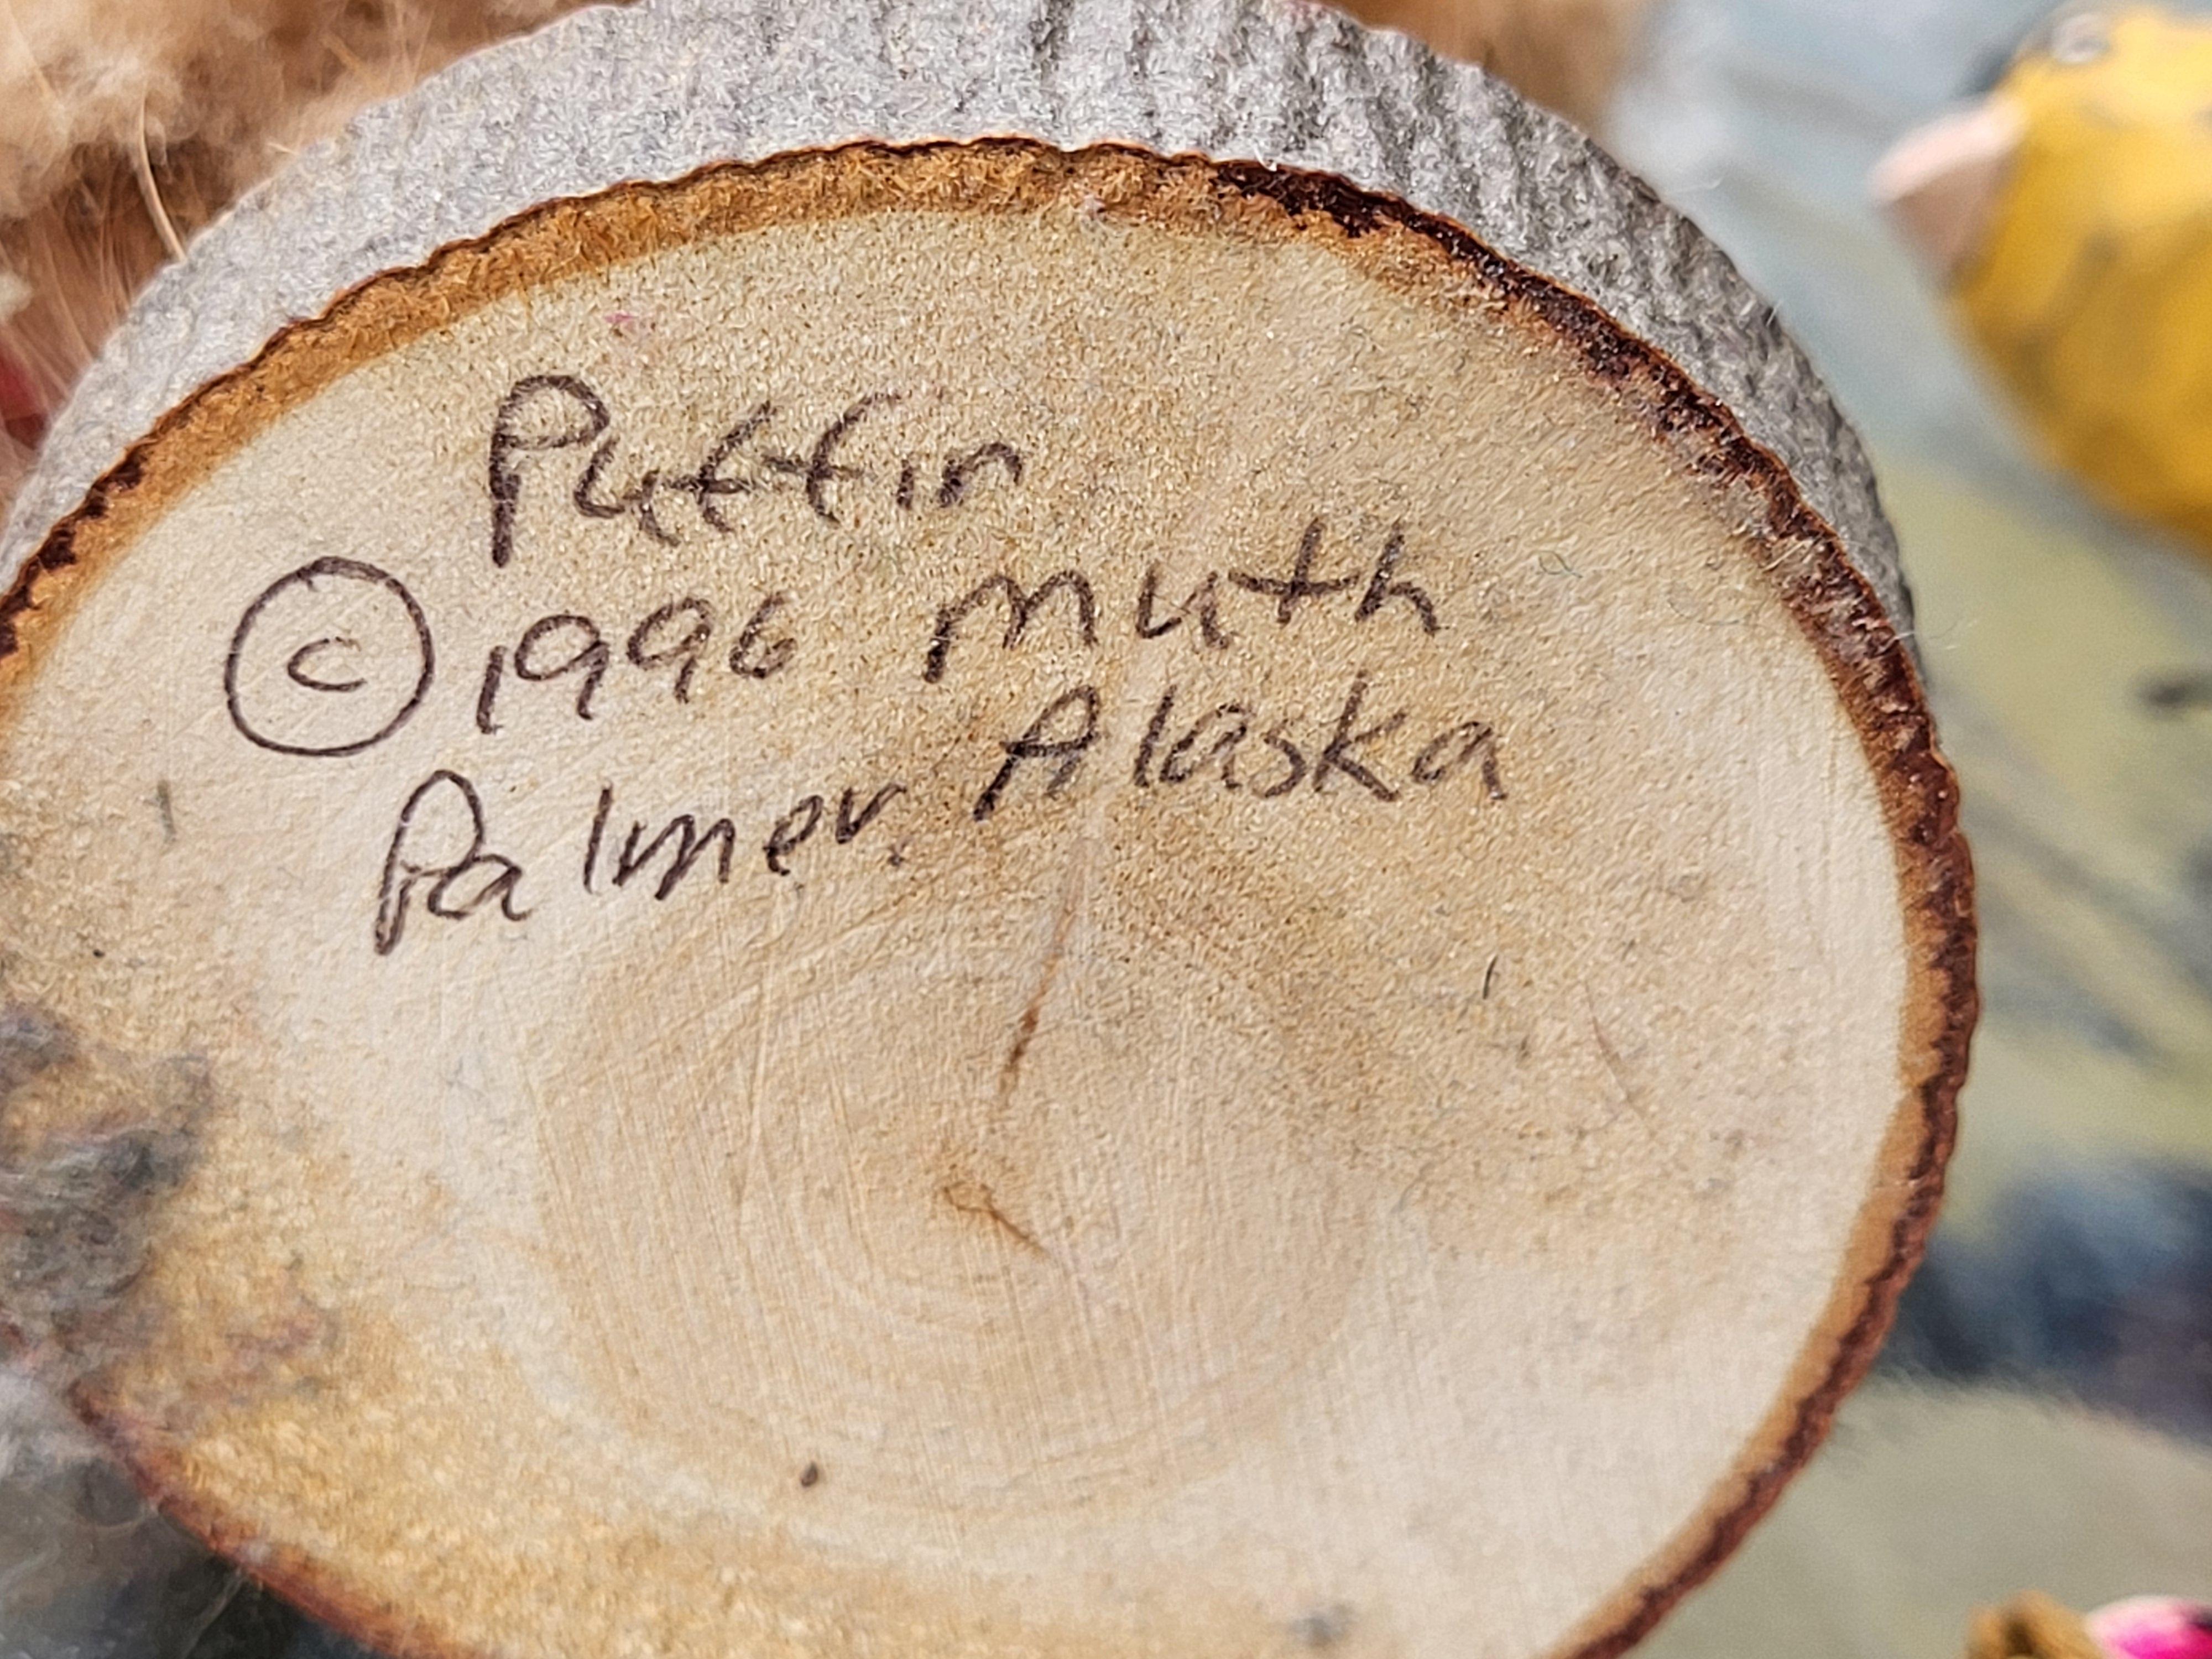 Puffin
© 1996 Muth
Palmer, Alaska